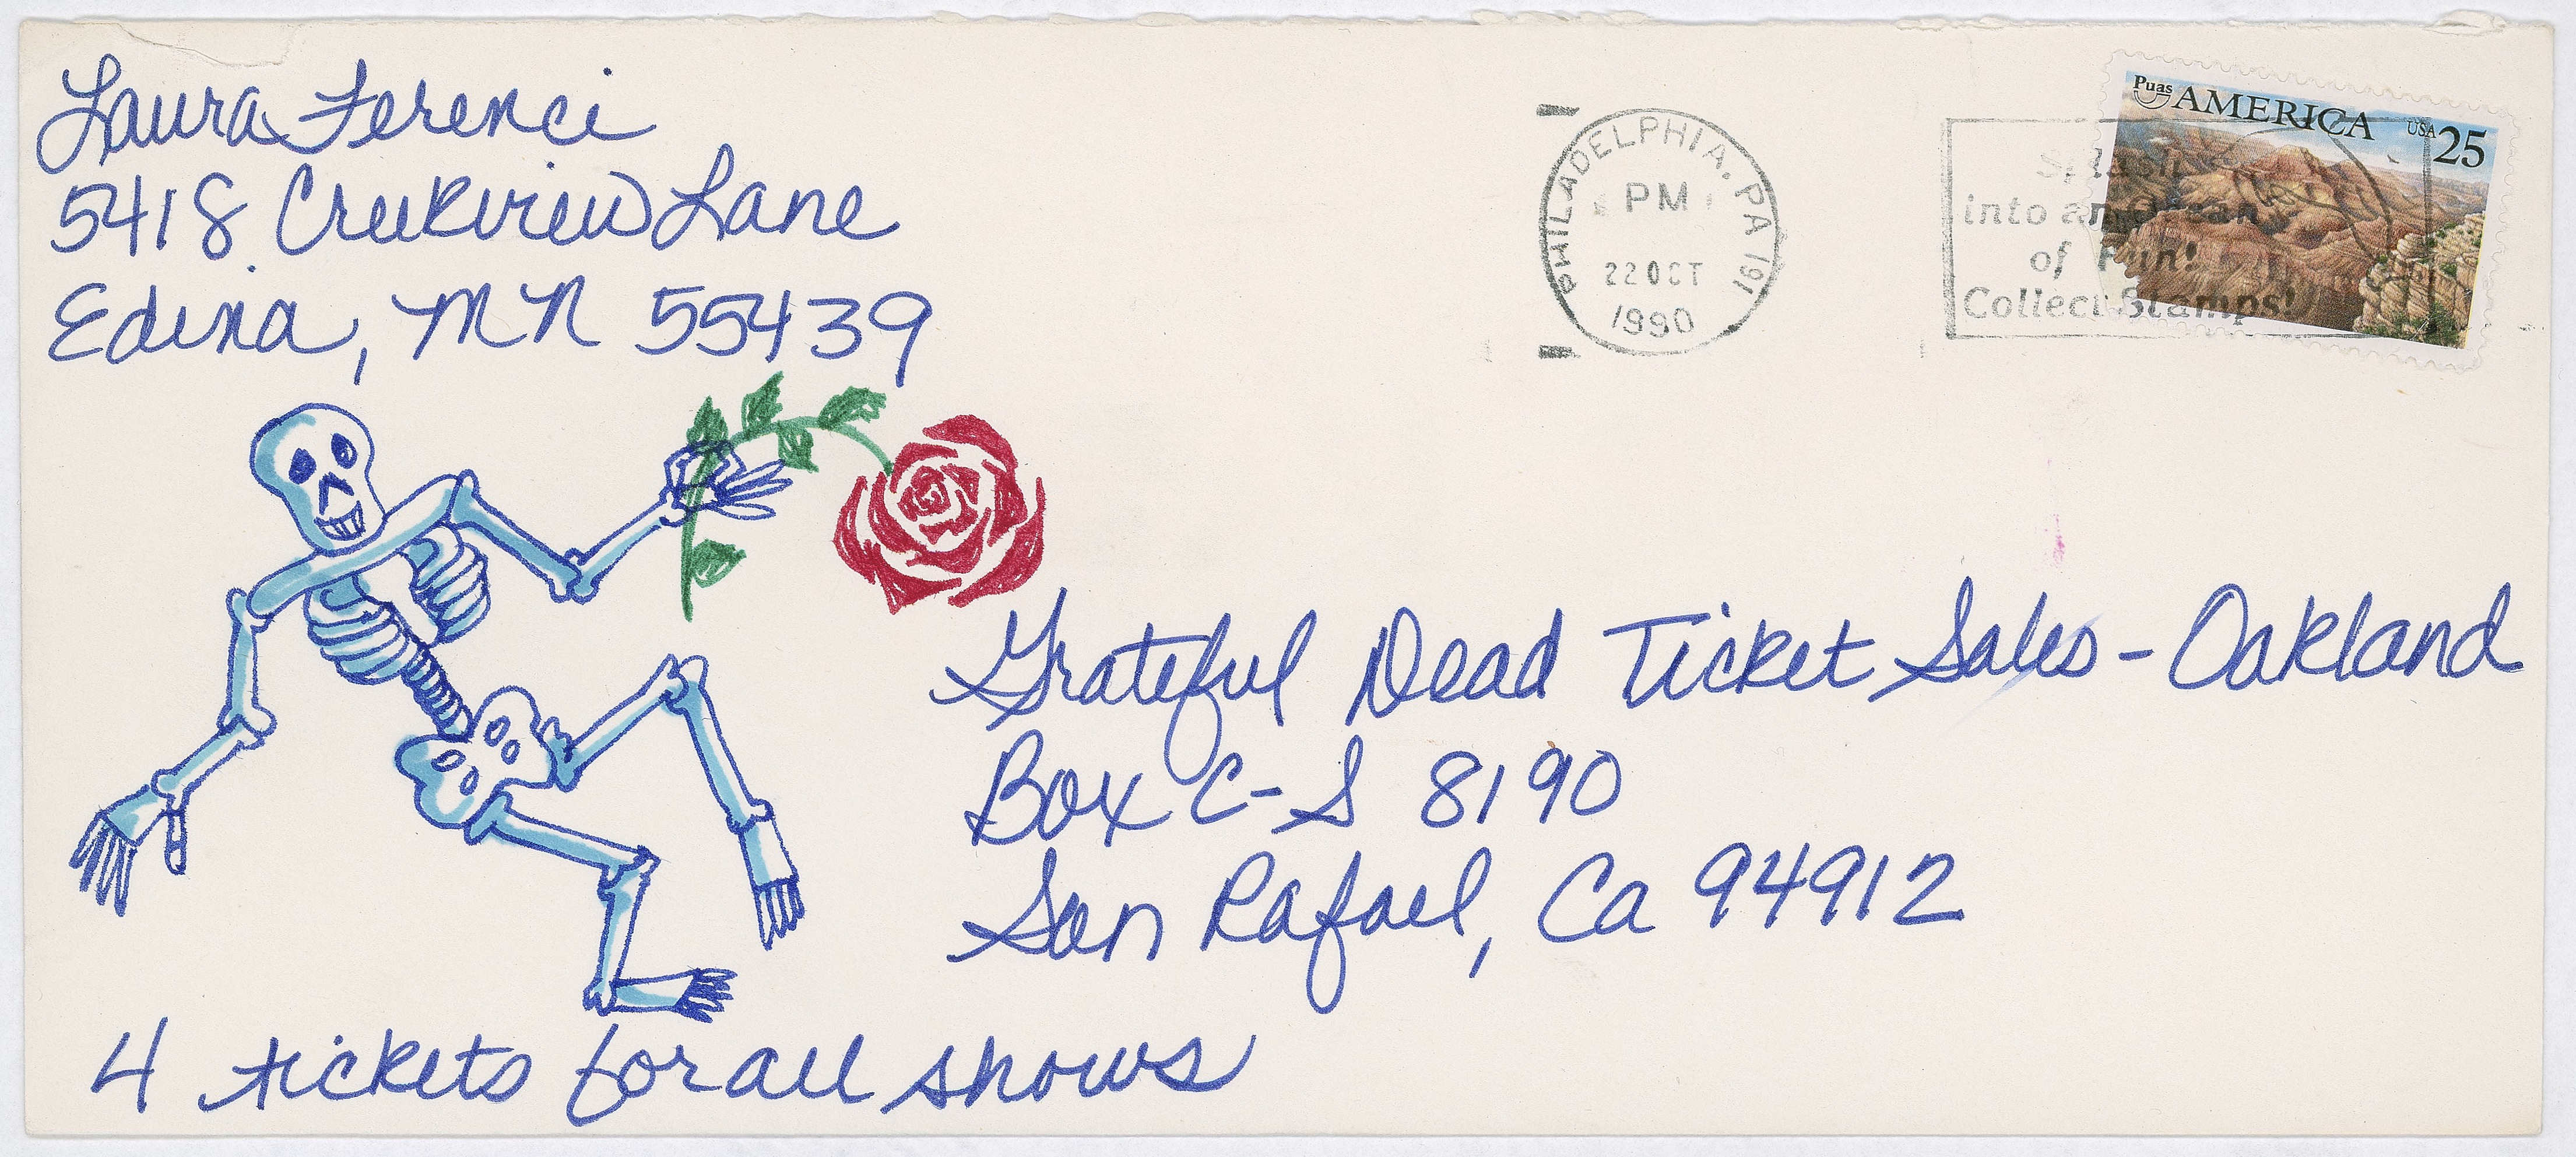 Laura Ferenci
5418 Creekview Lane
Edina, MN 55439
PHILADELPHIA, PA 191
PM
22 OCT
1990
Splash
into an Ocean
of Fun!
Collect Stamps!
Puas
AMERICA
USA 25
Grateful Dead Ticket Sales - Oakland
Box C-S 8190
San Rafael, Ca 94912
4 tickets for all shows